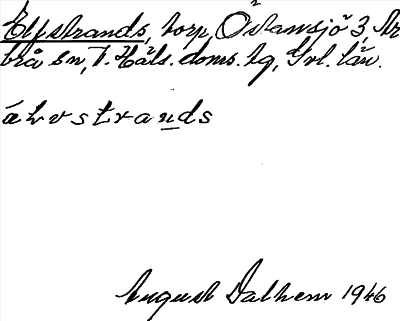 Elfstrands, torp, Östansjö 3, Ar
brå sn, V. Häls. doms. hg, Gvl. län.
ä̀lvstrands
August Dalhem 1946